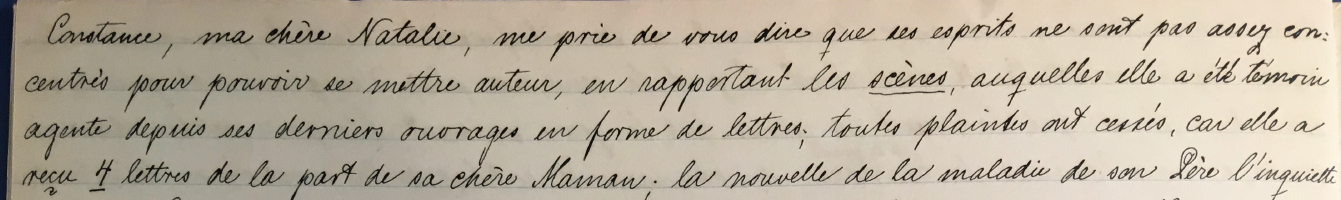 Constance, ma chère Natalie, me prie de vous dire que ses esprits ne sont pas assez con=
centrés pour pouvoir se mettre auteur, en rapportant les scènes, auquelles elle a été témoin
agente depuis ses derniers ouvrages en forme de lettres; toutes plaintes ont cessés, car elle a
reçu 4 lettres de la part de sa chère Maman; la nouvelle de la maladie de son Père l'inquiette